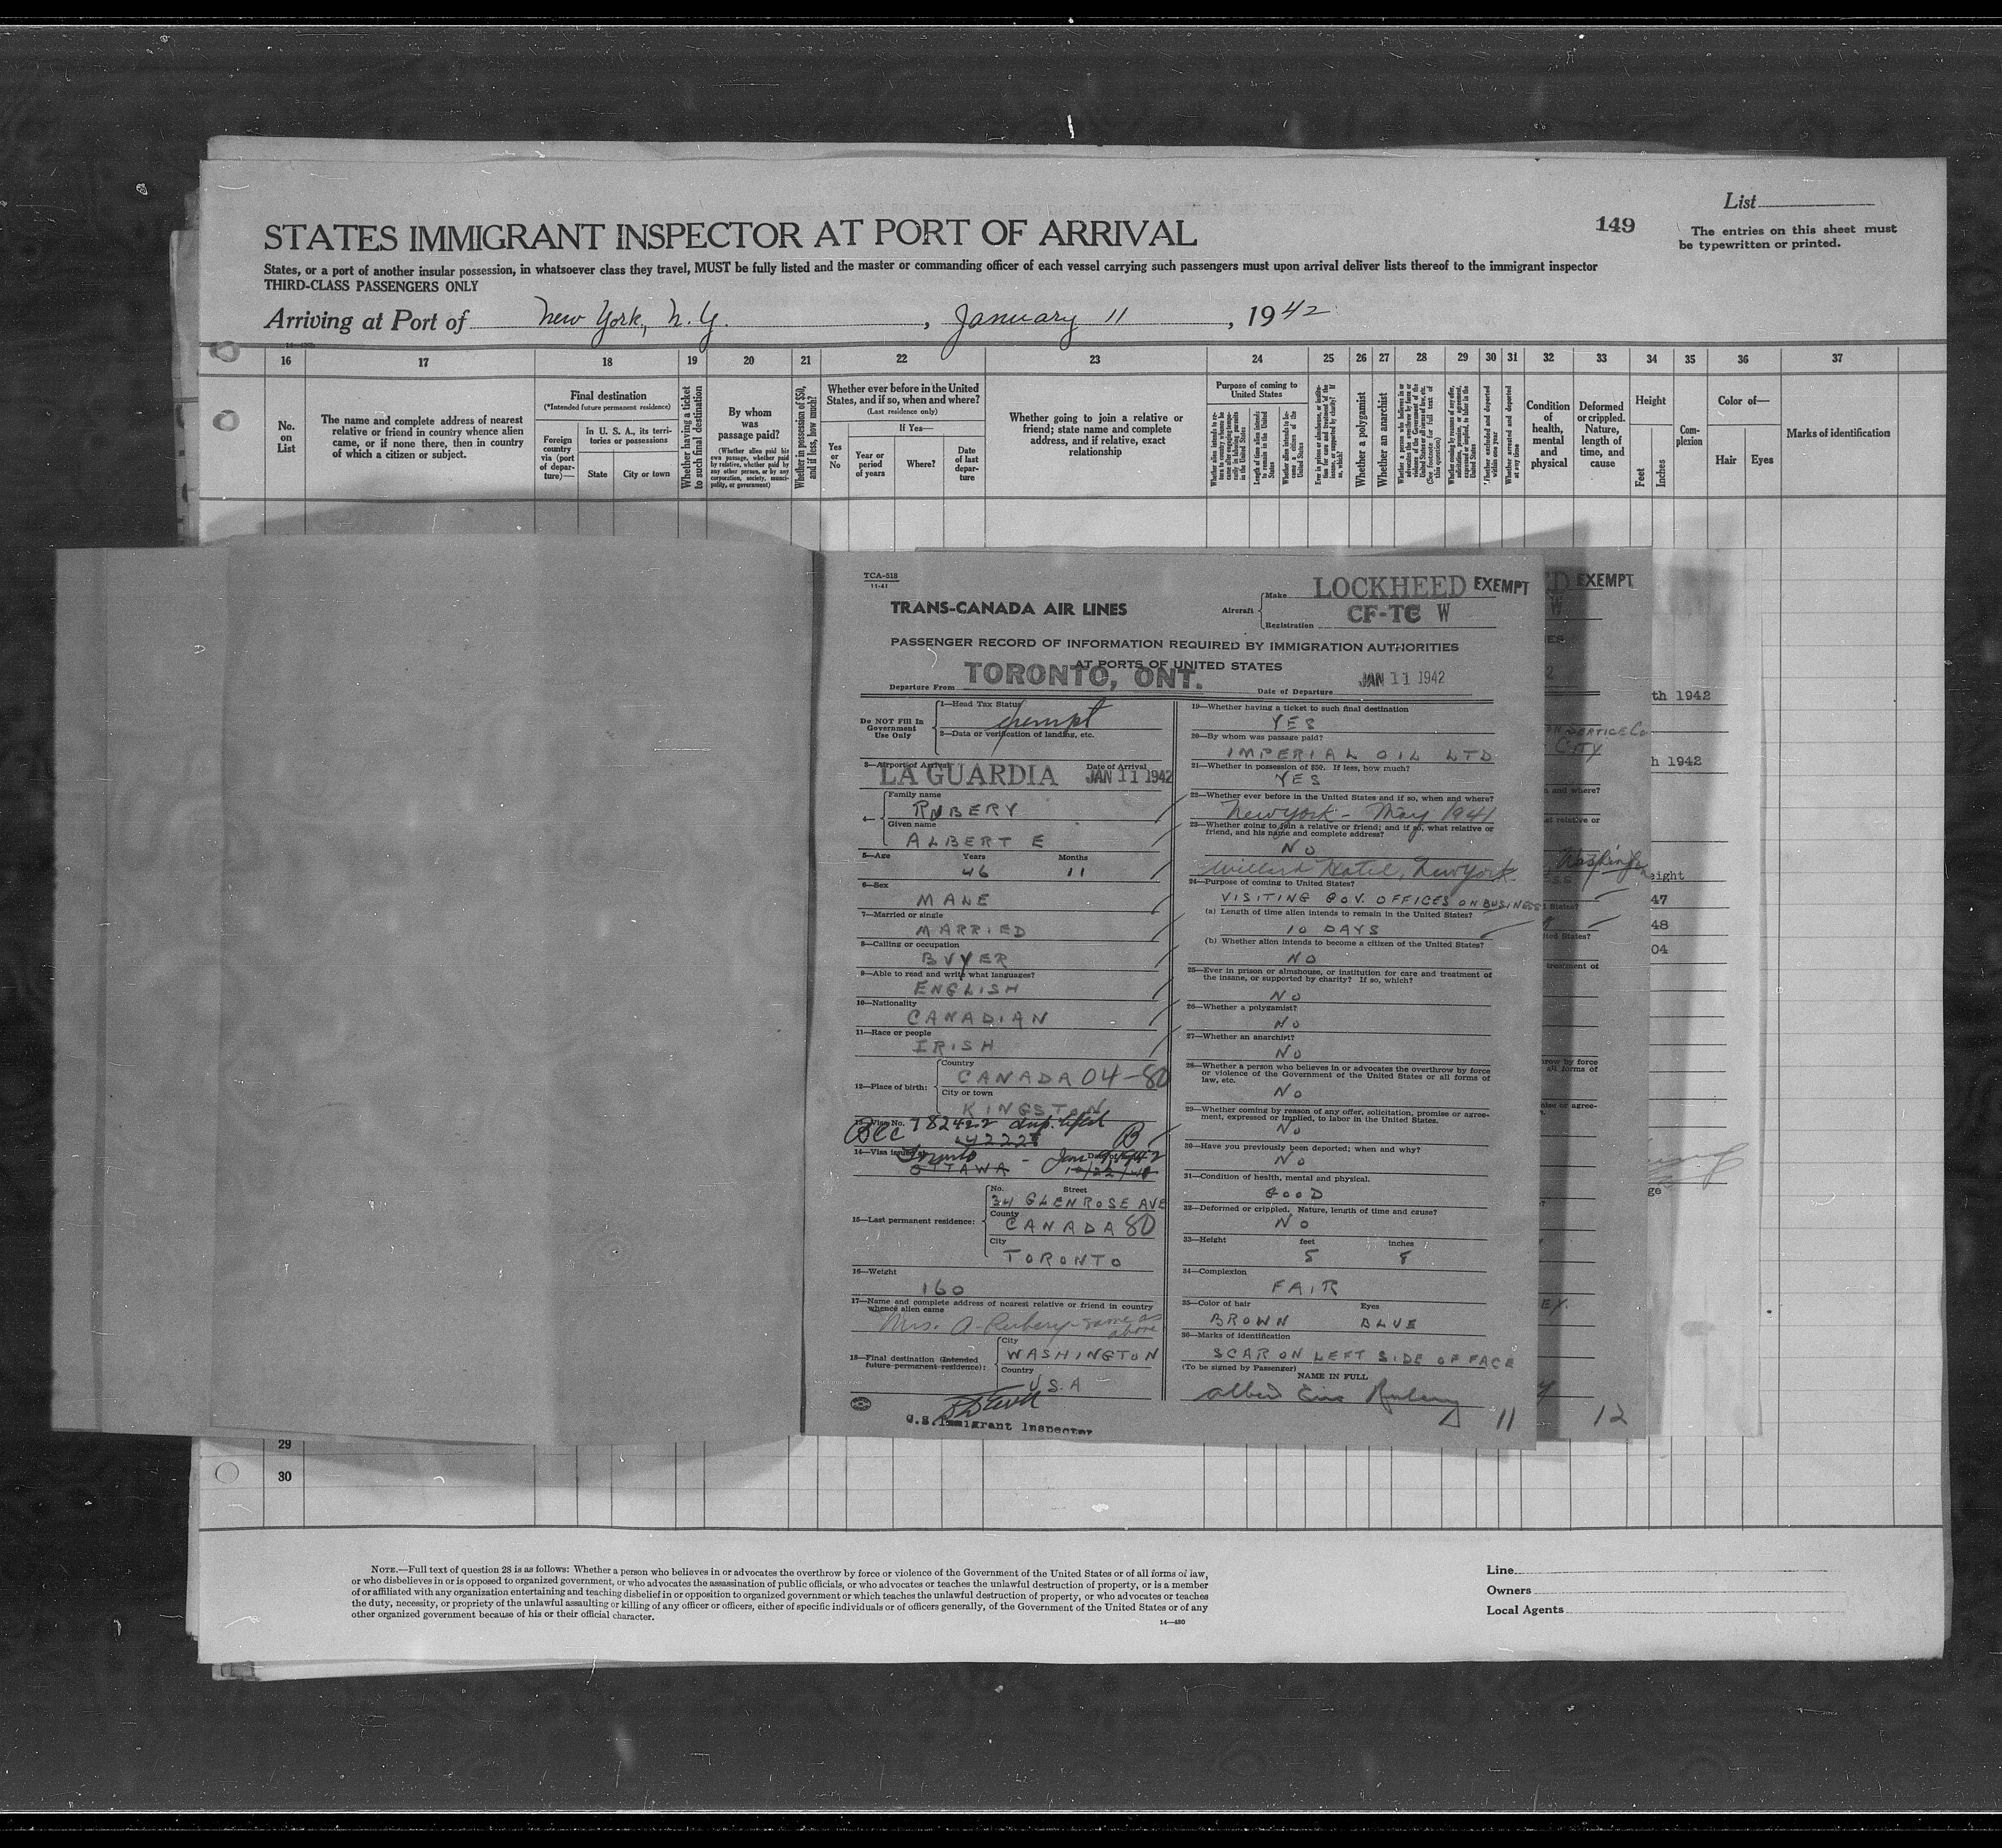 List
149
The entries on this sheet must
be typewritten or printed.
STATES IMMIGRANT INSPECTOR AT PORT OF ARRIVAL
States, or a port of another insular possession, in whatsoever class they travel, MUST be fully listed and the master or commanding officer of each vessel carrying such passengers must upon arrival deliver lists thereof to the immigrant inspector
THIRD-CLASS PASSENGERS ONLY
Arriving at Port of New York, N.Y. , January 11 , 1942
16 17 18 19 20 21 22 23 24 25 26 27 28 29 30 31 32 33 34 35 36 37
No. on List
The name and complete address of nearest relative or friend in country whence alien came, or if none there, then in country of which a citizen or subject.
Final destination
(*Intended future permanent residence)
Foreign country via (port of departure)—
In U. S. A., its territories or possessions
State
City or town
Whether having a ticket to such final destination
By whom was passage paid?
(Whether alien paid his own passage, whether paid by relative, whether paid by any other person, or by any corporation, society, municipality, or government)
Whether in possession of $50, and if less, how much?
Whether ever before in the United States, and if so, when and where?
(Last residence only)
Yes or No
If Yes—
Year or period of years
Where?
Date of last departure
Whether going to join a relative or friend; state name and complete address, and if relative, exact relationship
Purpose of coming to United States
Length of time alien intends to remain in the United States
Whether alien intends to become a citizen of the United States
Whether a polygamist
Whether an anarchist
Whether excluded and deported within one year
Whether arrested and deported at any time
Condition of health, mental and physical
Deformed or crippled. Nature, length of time, and cause
Height
Feet
Inches
Complexion
Color of—
Hair
Eyes
Marks of identification
TCA-518
11-41
TRANS-CANADA AIR LINES
Aircraft
Make LOCKHEED EXEMPT
Registration CF-TC W
PASSENGER RECORD OF INFORMATION REQUIRED BY IMMIGRATION AUTHORITIES
AT PORTS OF UNITED STATES
Departure From TORONTO, ONT.
Date of Departure JAN 11 1942
Do NOT Fill In Government Use Only
1—Head Tax Status
exempt
2—Data or verification of landing, etc.
3—Airport of Arrival
LA GUARDIA
Date of Arrival
JAN 11 1942
4—
Family name
RUBERY
Given name
ALBERT E
5—Age Years Months
46 11
6—Sex
MALE
7—Married or single
MARRIED
8—Calling or occupation
BUYER
9—Able to read and write what languages?
ENGLISH
10—Nationality
CANADIAN
11—Race or people
IRISH
12—Place of birth:
Country
CANADA 04-80
City or town
KINGSTON
13—Visa No. 782422
BCC
14—Visa issued at
Toronto - Jan
OTTAWA
15—Last permanent residence:
No. Street
34 GLENROSE AVE
County
CANADA 80
City
TORONTO
16—Weight
160
17—Name and complete address of nearest relative or friend in country whence alien came
Mrs. A. Rubery - same as above
18—Final destination (Intended future permanent residence):
City
WASHINGTON
Country
U.S.A
U.S. Immigrant Inspector
19—Whether having a ticket to such final destination
YES
20—By whom was passage paid?
IMPERIAL OIL LTD
21—Whether in possession of $50. If less, how much?
YES
22—Whether ever before in the United States and if so, when and where?
New York - May 1941
23—Whether going to join a relative or friend; and if so, what relative or
friend, and his name and complete address?
NO
Willard Hotel, New York
24—Purpose of coming to United States?
VISITING GOV. OFFICES ON BUSINESS
(a) Length of time alien intends to remain in the United States?
10 DAYS
(b) Whether alien intends to become a citizen of the United States?
NO
25—Ever in prison or almshouse, or institution for care and treatment of
the insane, or supported by charity? If so, which?
NO
26—Whether a polygamist?
NO
27—Whether an anarchist?
NO
28—Whether a person who believes in or advocates the overthrow by force
or violence of the Government of the United States or all forms of
law, etc.
NO
29—Whether coming by reason of any offer, solicitation, promise or agree-
ment, expressed or implied, to labor in the United States.
NO
30—Have you previously been deported; when and why?
NO
31—Condition of health, mental and physical.
GOOD
32—Deformed or crippled. Nature, length of time and cause?
NO
33—Height feet inches
5 8
34—Complexion
FAIR
35—Color of hair Eyes
BROWN BLUE
36—Marks of identification
SCAR ON LEFT SIDE OF FACE
(To be signed by Passenger)
NAME IN FULL
Albert Rubery
11
EXEMPT
W
th 1942
CITY
h 1942
eight
47
48
04
12
29
30
NOTE.—Full text of question 28 is as follows: Whether a person who believes in or advocates the overthrow by force or violence of the Government of the United States or of all forms of law,
or who disbelieves in or is opposed to organized government, or who advocates the assassination of public officials, or who advocates or teaches the unlawful destruction of property, or is a member
of or affiliated with any organization entertaining and teaching disbelief in or opposition to organized government or which teaches the unlawful destruction of property, or who advocates or teaches
the duty, necessity, or propriety of the unlawful assaulting or killing of any officer or officers, either of specific individuals or of officers generally, of the Government of the United States or of any
other organized government because of his or their official character.
14—480
Line
Owners
Local Agents